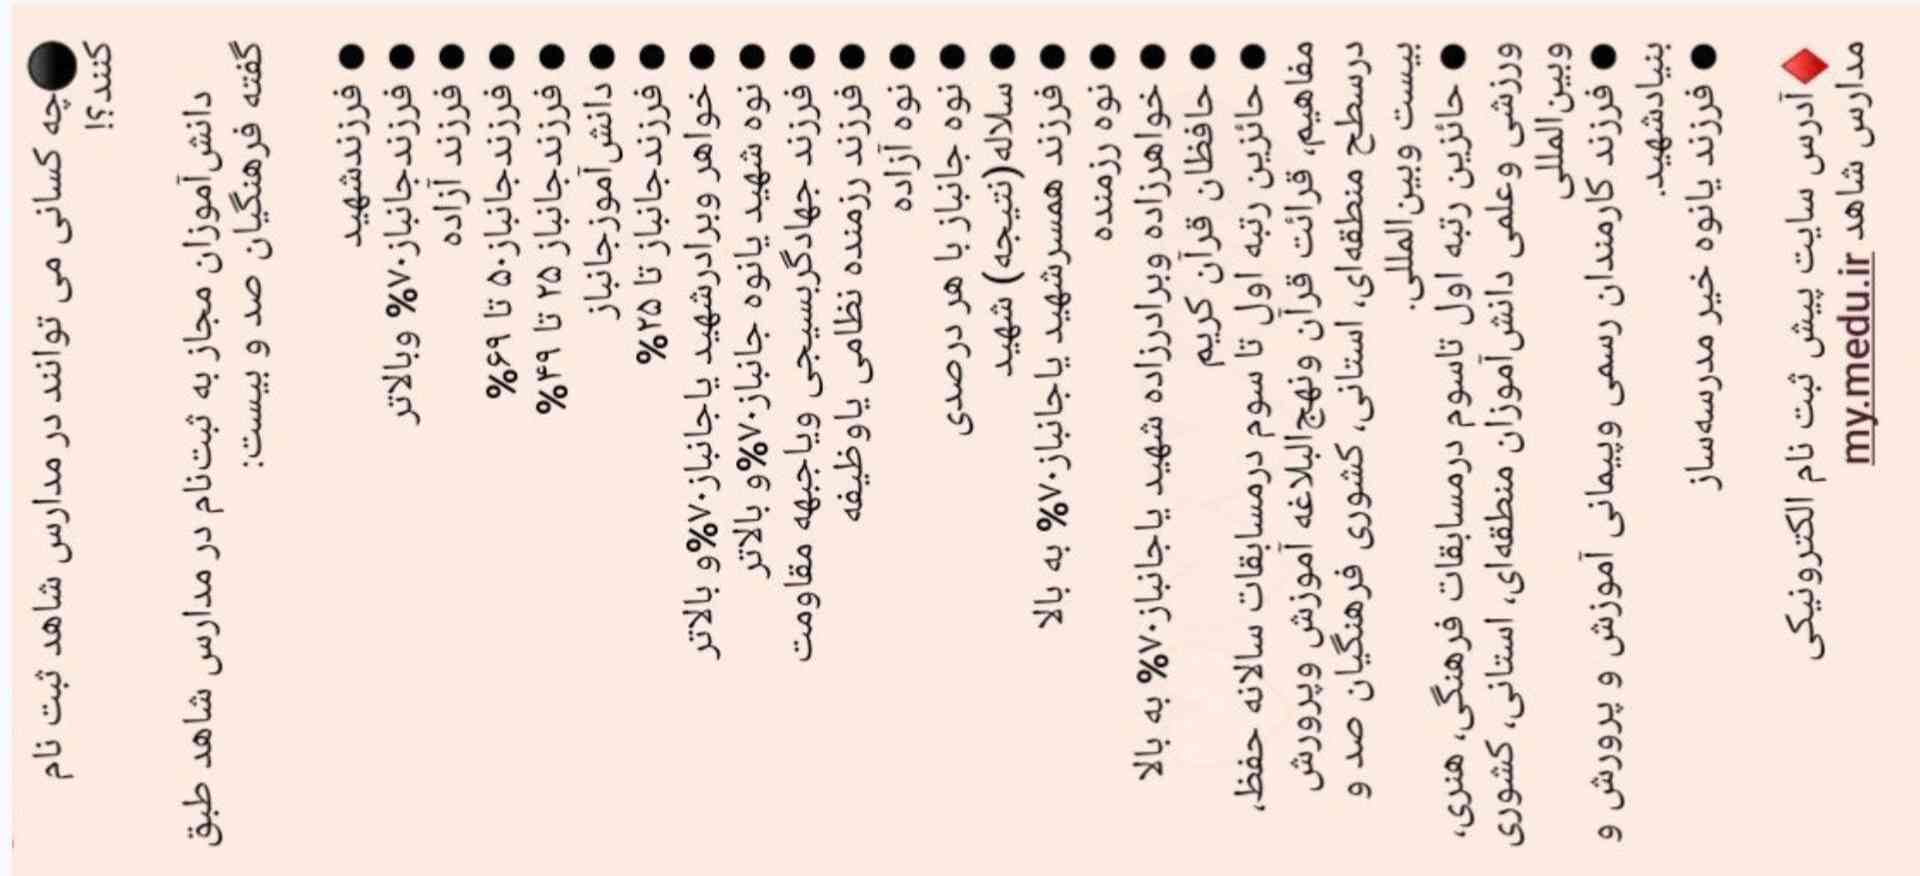 چه کسانی می توانند در مدارس شاهد ثبت نام
کنند؟!
دانش‌آموزان مجاز به ثبت‌نام در مدارس شاهد طبق
گفته فرهنگیان صد و بیست:
● فرزندشهید
● فرزندجانباز۷۰% وبالاتر
● فرزند آزاده
● فرزندجانباز۵۰ تا ۶۹%
● فرزندجانباز ۲۵ تا ۴۹%
● دانش‌آموزجانباز
● فرزندجانباز تا ۲۵%
● خواهر وبرادرشهید یاجانباز۷۰%و بالاتر
● نوه شهید یانوه جانباز۷۰%و بالاتر
● فرزند جهادگربسیجی ویاجبهه مقاومت
● فرزند رزمنده نظامی یاوظیفه
● نوه آزاده
● نوه جانباز با هر درصدی
● سلاله(نتیجه) شهید
● فرزند همسرشهید یاجانباز۷۰% به بالا
● نوه رزمنده
● خواهرزاده وبرادرزاده شهید یاجانباز۷۰% به بالا
● حافظان قرآن کریم
● حائزین رتبه اول تا سوم درمسابقات سالانه حفظ،
مفاهیم، قرائت قرآن ونهج‌البلاغه آموزش وپرورش
درسطح منطقه‌ای، استانی، کشوری فرهنگیان صد و
بیست وبین‌المللی.
● حائزین رتبه اول تاسوم درمسابقات فرهنگی، هنری،
ورزشی وعلمی دانش‌آموزان منطقه‌ای، استانی، کشوری
وبین‌المللی
● فرزند کارمندان رسمی وپیمانی آموزش و پرورش و
بنیادشهید.
● فرزند یانوه خیر مدرسه‌ساز
آدرس سایت پیش ثبت نام الکترونیکی
مدارس شاهد my.medu.ir